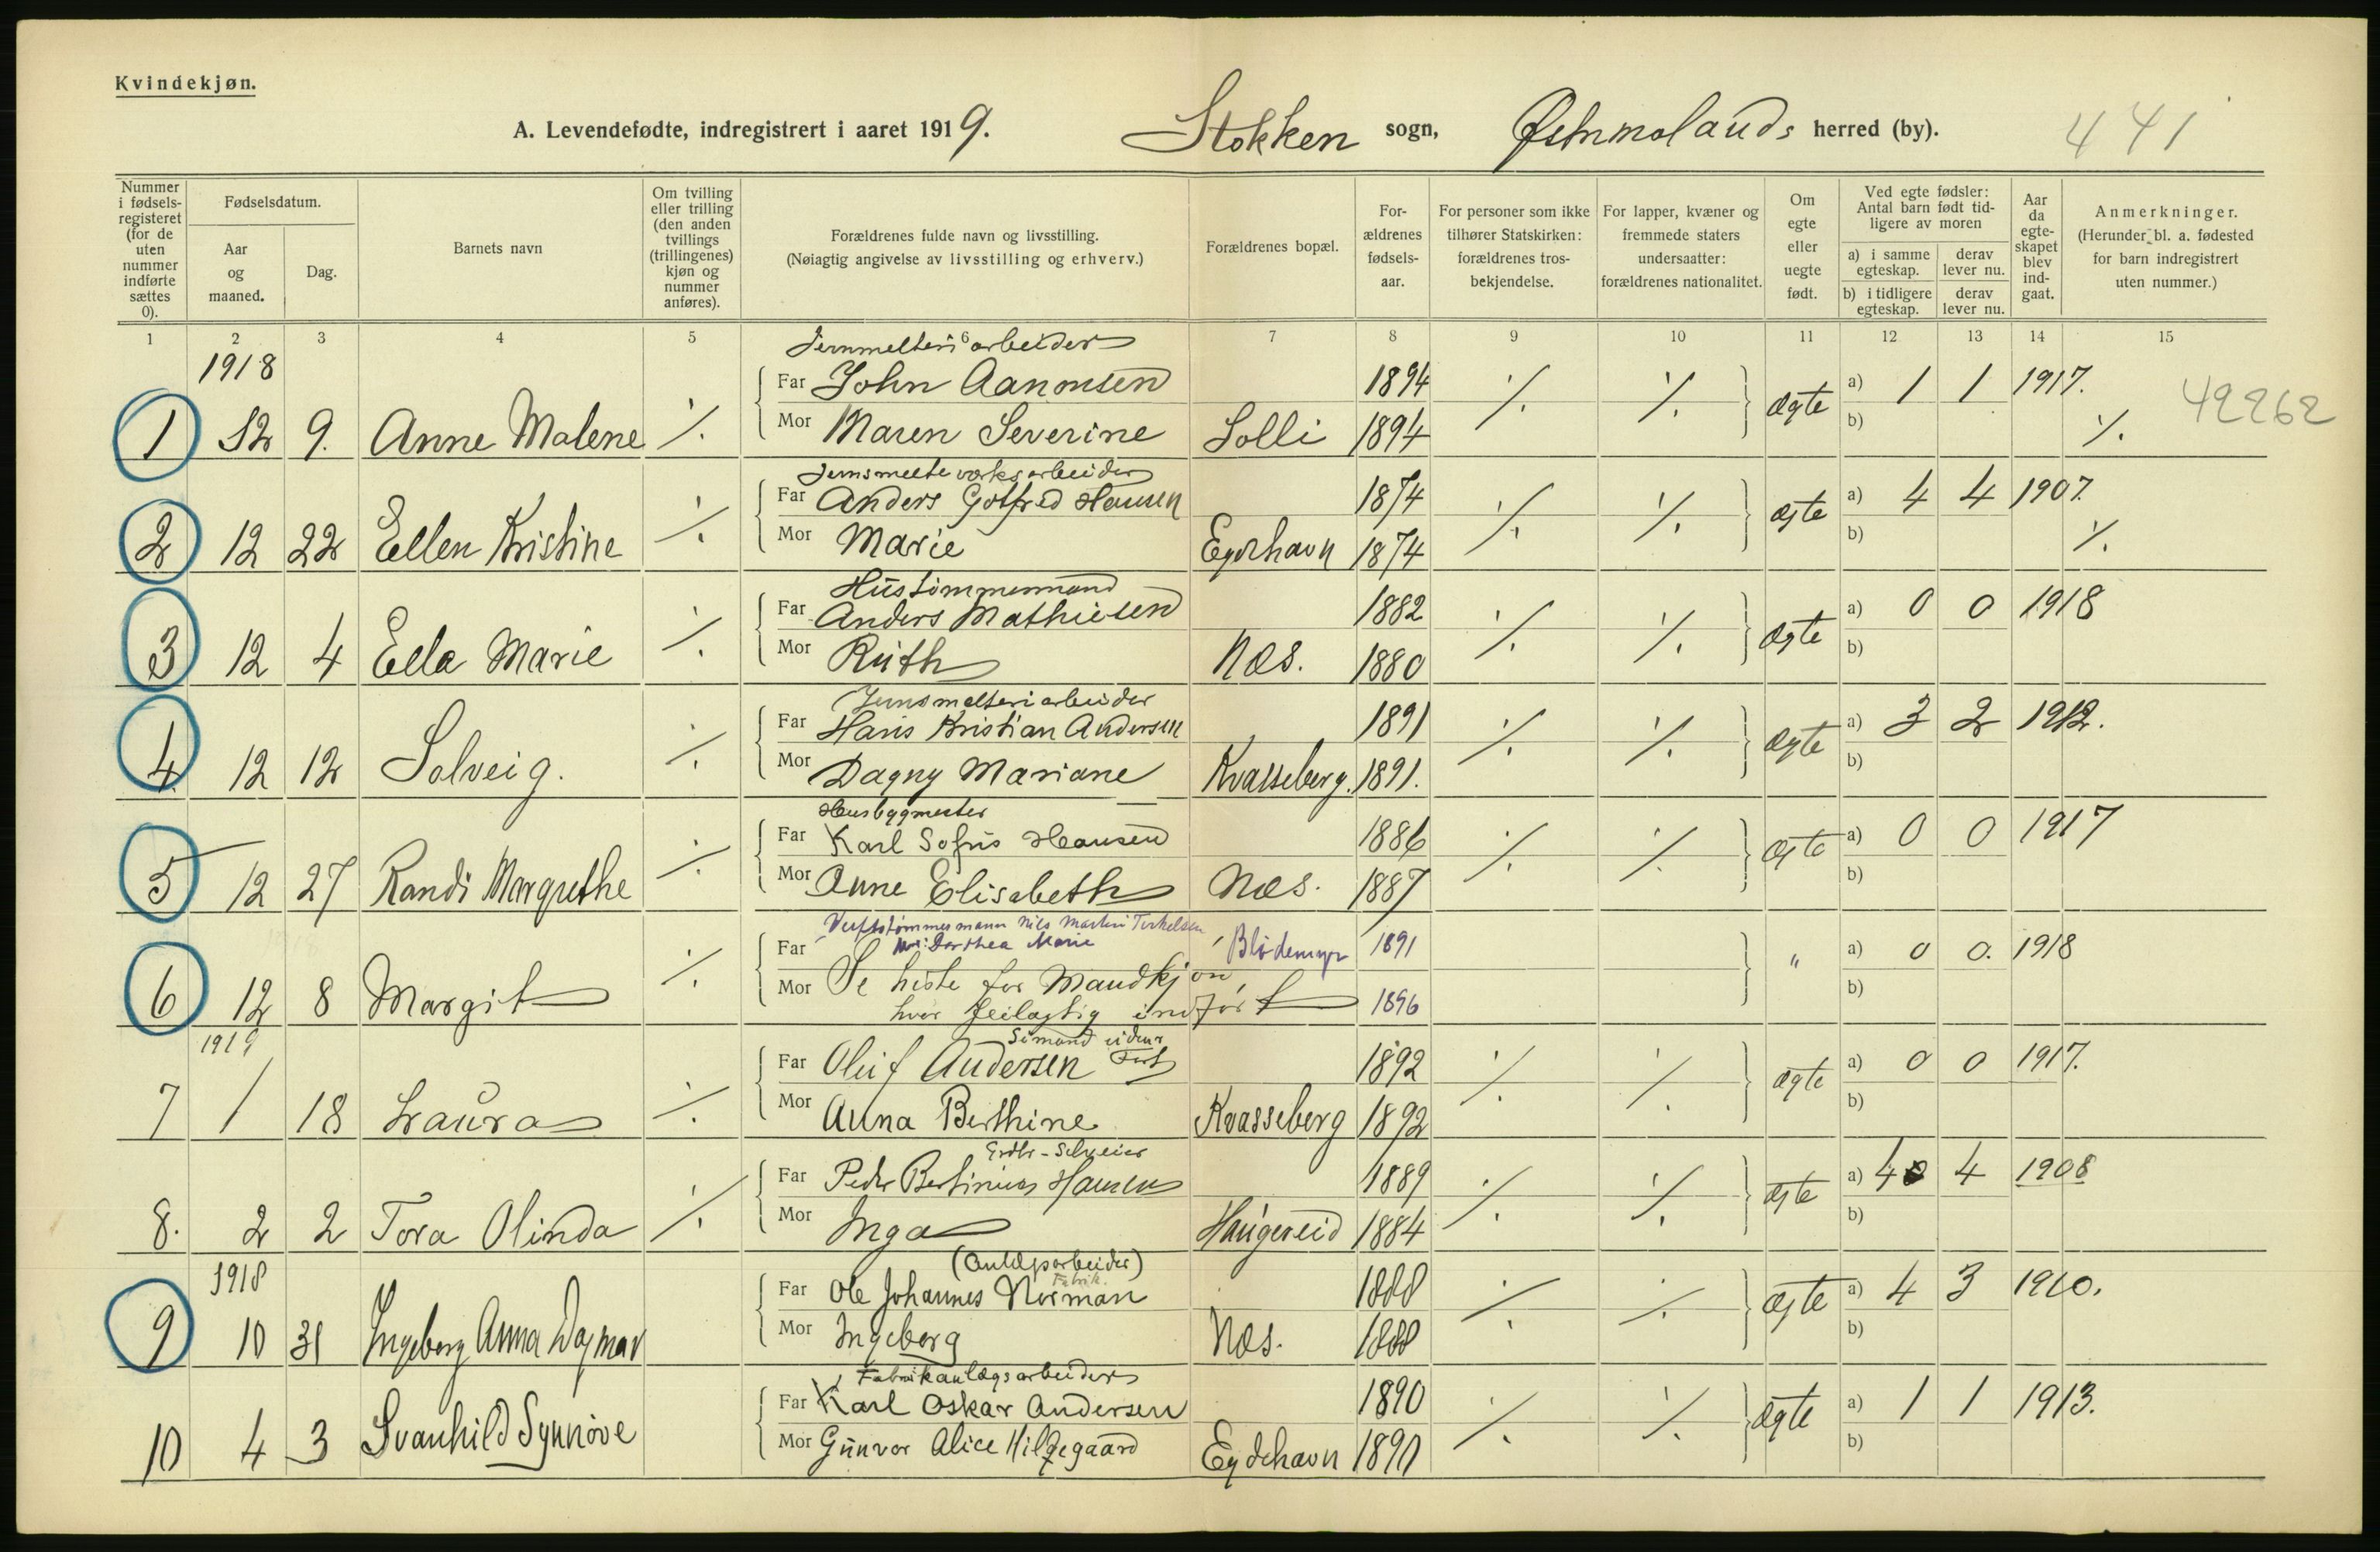 Kvindekjøn.
A. Levendefødte, indregistrert i aaret 1919. Stokken sogn, herred (by). 441
Nummer i fødsels-registeret (for de uten nummer indførte sættes 0).
Fødselsdatum.
Aar og maaned.
Dag.
Barnets navn
Om tvilling eller trilling (den anden tvillings (trillingenes) kjøn og nummer anføres).
Forældrenes fulde navn og livsstilling. (Nøiagtig angivelse av livsstilling og erhverv.)
Forældrenes bopæl.
For-ældrenes fødsels-aar.
For personer som ikke tilhører Statskirken: forældrenes tros-bekjendelse.
For lapper, kvæner og fremmede staters undersaatter: forældrenes nationalitet.
Om egte eller uegte født.
Ved egte fødsler: Antal barn født tid-ligere av moren
a) i samme egteskap.
derav lever nu.
b) i tidligere egteskap.
derav lever nu.
Aar da egte-skapet blev ind-gaat.
Anmerkninger. (Herunder bl. a. fødested for barn indregistrert uten nummer.)
1 2 3 4 5 6 7 8 9 10 11 12 13 14 15
1918 Jernmelteriarbeider
Far John Aanonsen 1894 ·/. ·/. ægte a) 1 1 1917. 42262
1 12 9. Anne Malene ·/. Mor Maren Severine Solli 1894 b) ·/.
Jernsmelteverksarbeider
Far Anders Gotfred Hansen 1874 ·/. ·/. ægte a) 4 4 1907.
2 12 22 Ellen Kristine ·/. Mor Marie Eydehavn 1874 b) ·/.
Hustømmermand
Far Anders Mathiesen 1882 ·/. ·/. ægte a) 0 0 1918
3 12 4 Ella Marie ·/. Mor Ruth Næs. 1880 b)
Jernsmelteriarbeider
Far Hans Kristian Andersen 1891 ·/. ·/. ægte a) 3 2 1912.
4. 12 12 Solveig. ·/. Mor Dagny Mariane Kvasseberg. 1891. b)
Husbygmester
Far Karl Sofus Hansen 1886 ·/. ·/. ægte a) 0 0 1917
5 12 27 Randi Margrethe ·/. Mor Anne Elisabeth Næs. 1887 b)
Verftstømmermann Nils Martin Terkelsen
Far Mor: Dorthea Marie Blødemyr 1891 " a) 0 0. 1918
6 12 8 Margit ·/. Mor Se liste for Mandkjøn b)
hvor feilagtig indført 1896
1919 Sømand
Far Oluf Andersen 1892 ·/. ·/. ægte a) 0 0 1917.
7 1 18 Laura ·/. Mor Anna Berthine Kvasseberg 1892 b)
Far Peder Bertinius Hansen 1889 ·/. ·/. ægte a) 4 4 1908
8. 2 2 Tora Olinda ·/. Mor Inga Haugereid 1884 b)
1918 (Anlægsarbeider)
Fabrik.
Far Ole Johannes Norman 1888 ·/. ·/. ægte a) 4 3 1910.
9 10 31 Ingeborg Anna Dagmar Mor Ingeborg Næs. 1888 b)
Fabrikanlægsarbeider
Far Karl Oskar Andersen 1890 ·/. ·/. ægte a) 1 1 1913.
10 4 3 Svanhild Synnøve Mor Gunvor Alice Hildegaard Eydehavn 1890 b)